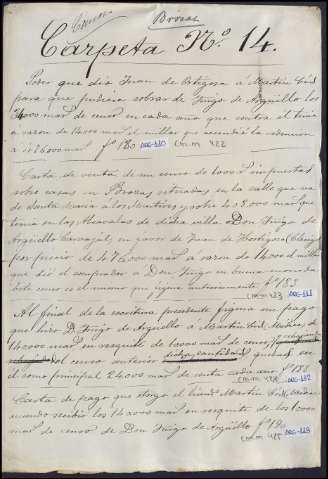 Censos
Brozas
Carpeta Nº 14.
Poder que dió Juan de Ortigosa á Martin Cid
para que pudiera cobrar de Iñigo de Arguillo los
24000 mar.^s de censo en cada año que contra el tenia
á razon de 14000 mar.^s el millar que ascendia la redencion
á 336000 mar.^s fº 180 DEG-110 cm.m 422
Carta de venta de un censo de 1000 impuestas
sobre casas en Brozas situadas en la calle que va
de Santa Maria á los Martires, y sobre los 8.000 mar.^s que
tenia en las Alcavalas de dicha villa Don Iñigo de
Arguello Carvajal, en favor de Juan de Hortigosa
por precio de 14000 mar.^s á razon de 14000 el millar
que dió el comprador á Don Iñigo en buena moneda
este censo es el mismo que sigue anteriormente fº 185
cm.m 423 DEG-111
Al final de la escritura precedente figura un pago
que hizo D. Iñigo de Arguello á Martin Cid, Medina, de
14000 mar.^s en requite de 1000 mar.^s de censo
del censo anterior dicha cantidad quedando
el como principal 24000 mar.^s de renta cada año fº 188
cm.m 424 DEG-112
Carta de pago que otorgó el Martin Cid
cuando recibió los 14000 mar.^s en requite de los 1000
mar.^s de censo de Don Iñigo de Arguello fº 190
cm.m 425 DEG-113